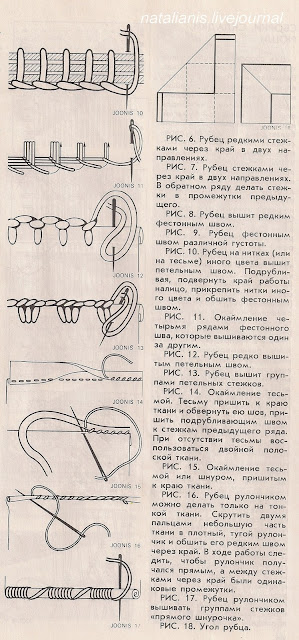 natalianis.livejournal
JOONIS 10
JOONIS 11
JOONIS 12
JOONIS 13
JOONIS 14
JOONIS 15
JOONIS 16
JOONIS 17
JOONIS 18
РИС. 6. Рубец редкими стеж-
ками через край в двух на-
правлениях.
РИС. 7. Рубец стежками че-
рез край в двух направлениях.
В обратном ряду делать стеж-
ки в промежутки предыду-
щего.
РИС. 8. Рубец вышит редким
фестонным швом.
РИС. 9. Рубец фестонным
швом различной густоты.
РИС. 10. Рубец на нитках (или
на тесьме) иного цвета вышит
петельным швом. Подрубли-
вая, подвернуть край работы
налицо, прикрепить нитки ино-
го цвета и обшить фестонным
швом.
РИС. 11. Окаймление че-
тырьмя рядами фестонного
шва, которые вышиваются один
за другим.
РИС. 12. Рубец редко выши-
тым петельным швом.
РИС. 13. Рубец вышит груп-
пами петельных стежков.
РИС. 14. Окаймление тесь-
мой. Тесьму пришить к краю
ткани и обвернуть ею шов, при-
шить подрубливающим швом
к стежкам предыдущего ряда.
При отсутствии тесьмы вос-
пользоваться двойной поло-
ской ткани.
РИС. 15. Окаймление тесь-
мой или шнуром, пришитым
к краю ткани.
РИС. 16. Рубец рулончиком
можно делать только на тон-
кой ткани. Скрутить двумя
пальцами небольшую часть
ткани в плотный, тугой рулон-
чик и обшить его редким швом
через край. В ходе работы сле-
дить, чтобы рулончик полу-
чался прямым, а между стеж-
ками через край были одина-
ковые промежутки.
РИС. 17. Рубец рулончиком
вышивать группами стежков
«прямого шнурочка».
РИС. 18. Угол рубца.